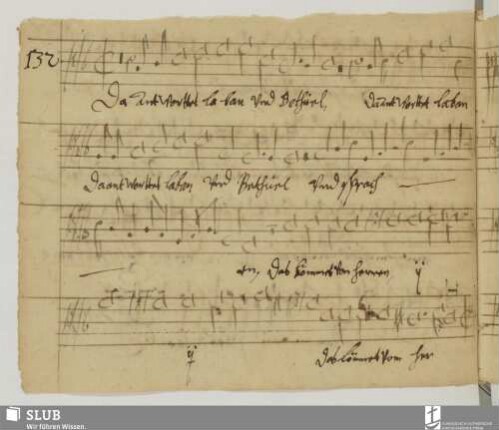 132
Da Antworttet laban Vnd Bethuel, Da antworttet laban
Da antworttet laban Vnd Bethuel Vnd sprach
en, Das kömmet von herren ij
ij Das kömmet Vom her
SLUB
Wir führen Wissen.